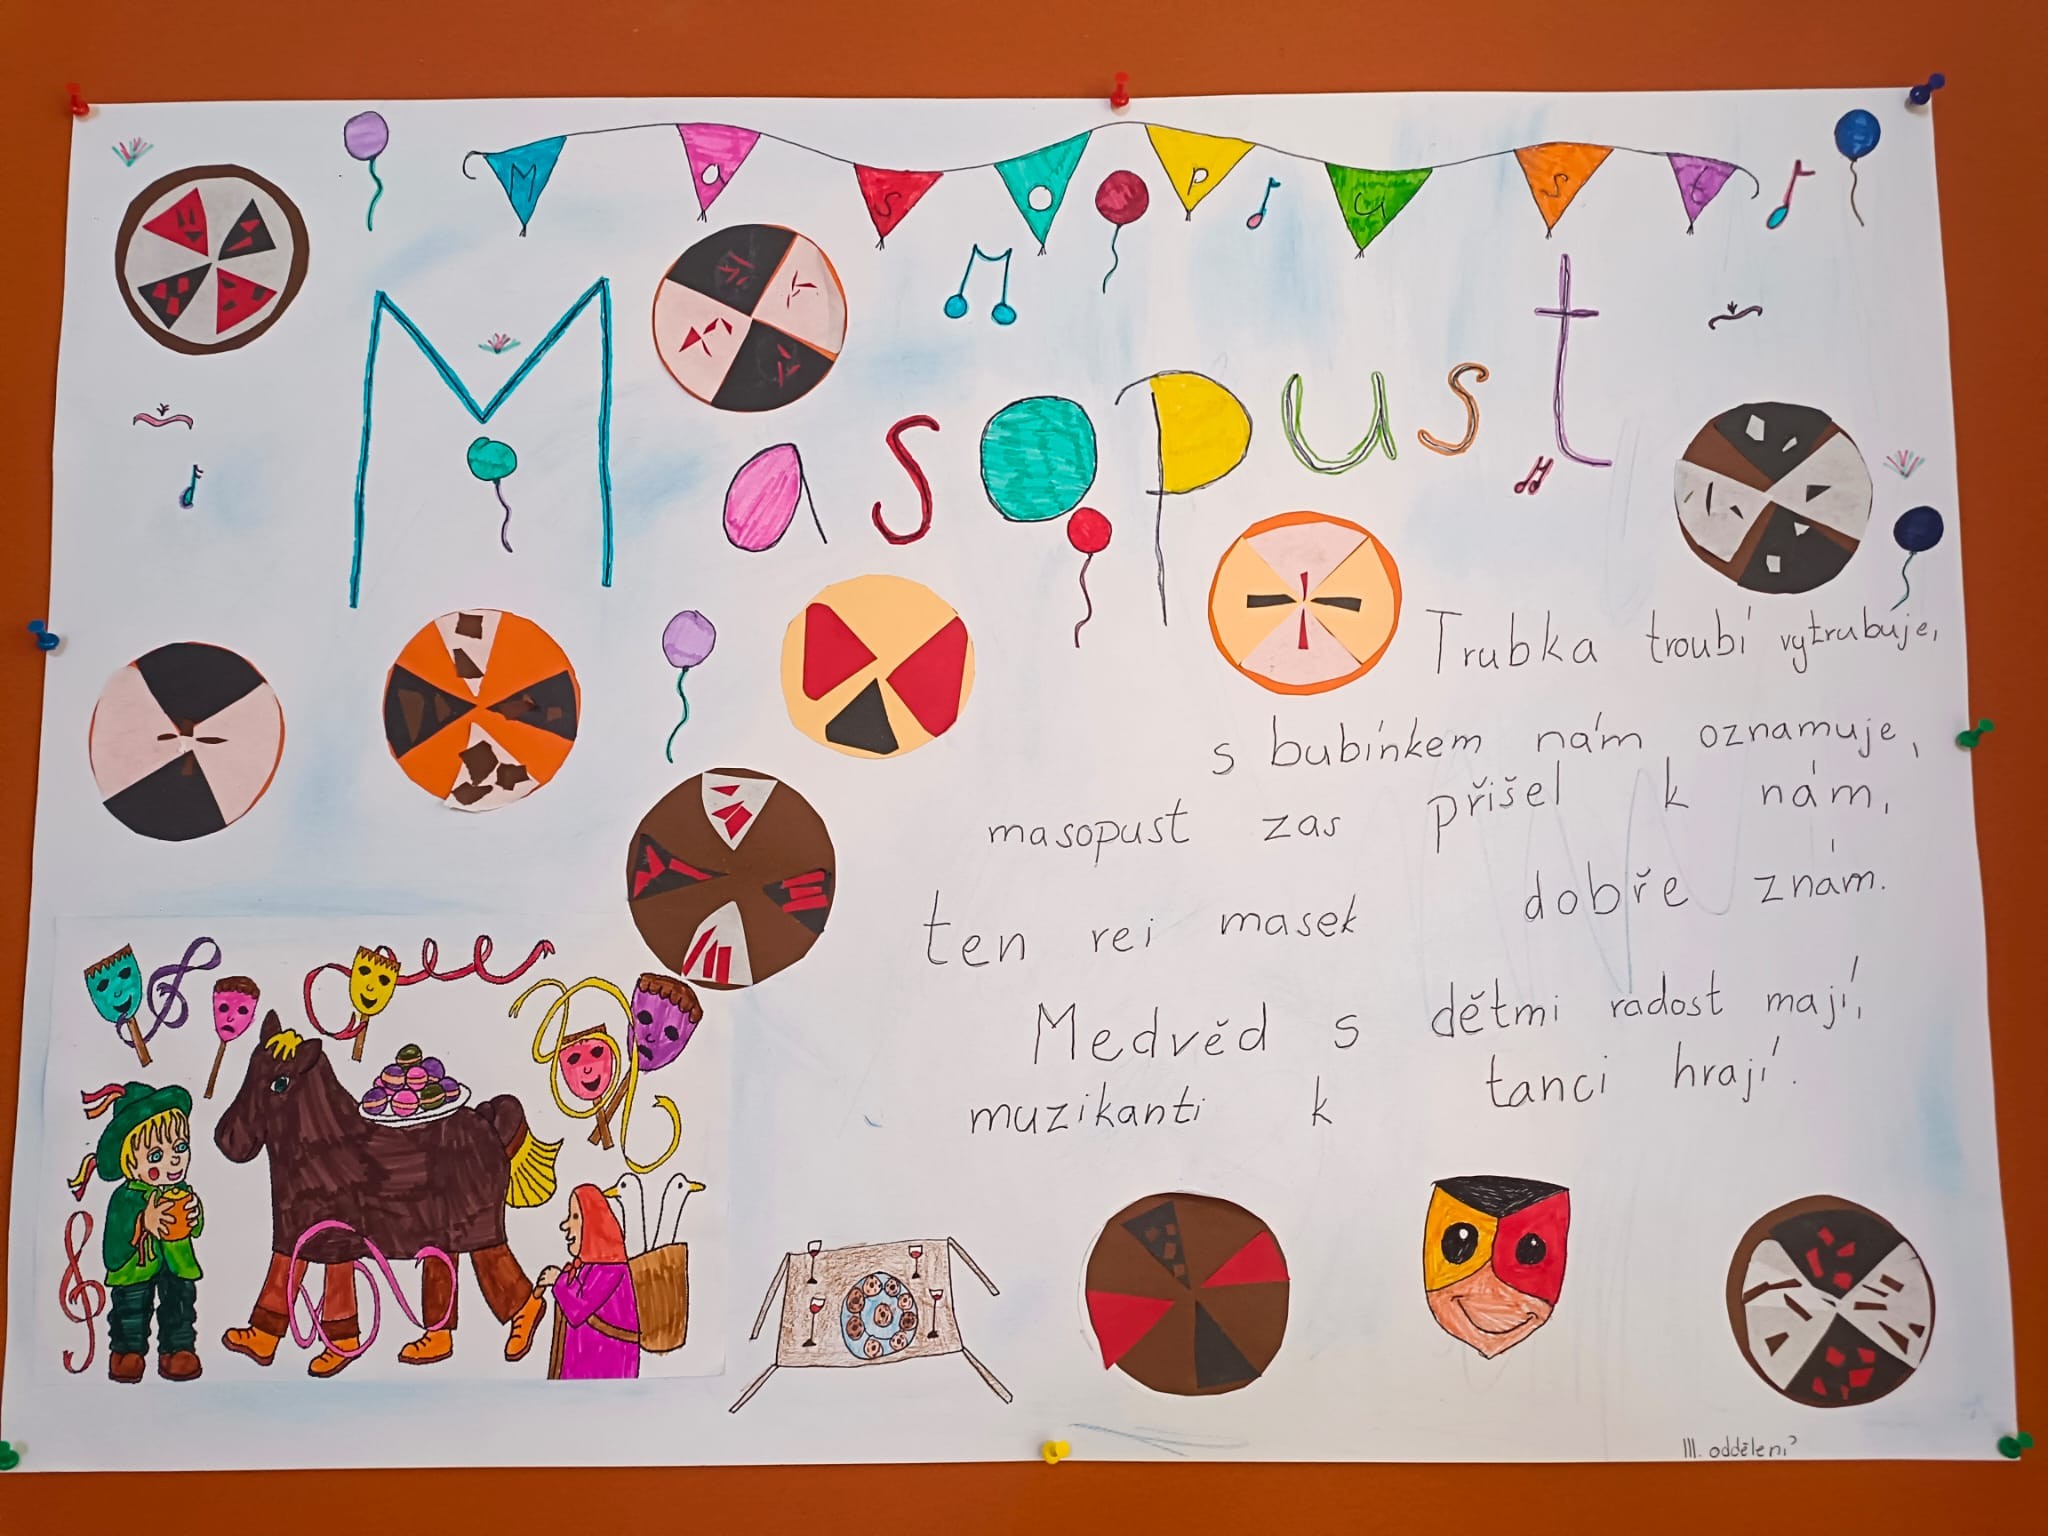 Masopust
Masopust
Trubka troubí vytrubuje,
s bubínkem nám oznamuje,
masopust zas přišel k nám,
ten rei masek dobře znám.
Medvěd s dětmi radost mají,
muzikanti k tanci hrají.
III. oddělení